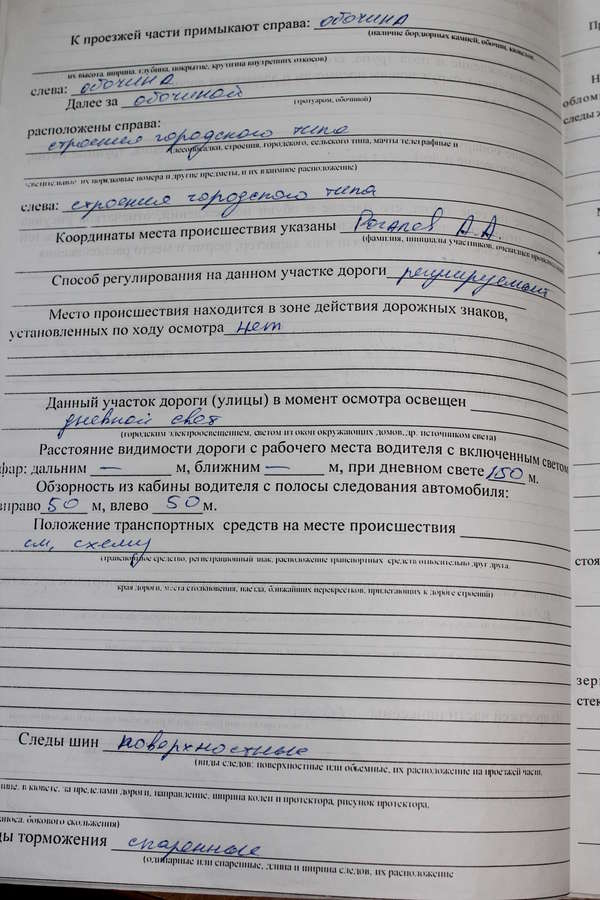 К проезжей части примыкают справа: обочина
(наличие бордюрных камней, обочин, кюветов,
их высота, ширина, глубина, покрытие, крутизна внутренних откосов)
слева: обочина
Далее за обочиной
(тротуаром, обочиной)
расположены справа:
строения городского типа
(лесопосадки, строения, городского, сельского типа, мачты телеграфные и
осветительные их порядковые номера и другие предметы, и их взаимное расположение)
слева: строения городского типа
Координаты места происшествия указаны А.А.
(фамилия, инициалы участников, очевидцев
Способ регулирования на данном участке дороги регулируемый
Место происшествия находится в зоне действия дорожных знаков,
установленных по ходу осмотра нет
Данный участок дороги (улицы) в момент осмотра освещен
дневной свет
(городским электроосвещением, светом из окон окружающих домов, др. источником света)
Расстояние видимости дороги с рабочего места водителя с включенным светом
фар: дальним — м, ближним — м, при дневном свете 150 м.
Обзорность из кабины водителя с полосы следования автомобиля:
вправо 50 м, влево 50 м.
Положение транспортных средств на месте происшествия
см, схему
(транспортное средство, регистрационный знак, расположение транспортных средств относительно друг друга,
края дороги, места столкновения, наезда, ближайших перекрестков, прилегающих к дороге строений)
Следы шин поверхностные
(виды следов: поверхностные или объемные, их расположение на проезжей части,
чине, в кювете, за пределами дороги, направление, ширина колеи и протектора, рисунок протектора,
заноса, бокового скольжения)
ды торможения спаренные
(одинарные или спаренные, длина и ширина следов, их расположение
Н
облом
следы
стоя
зер
стек